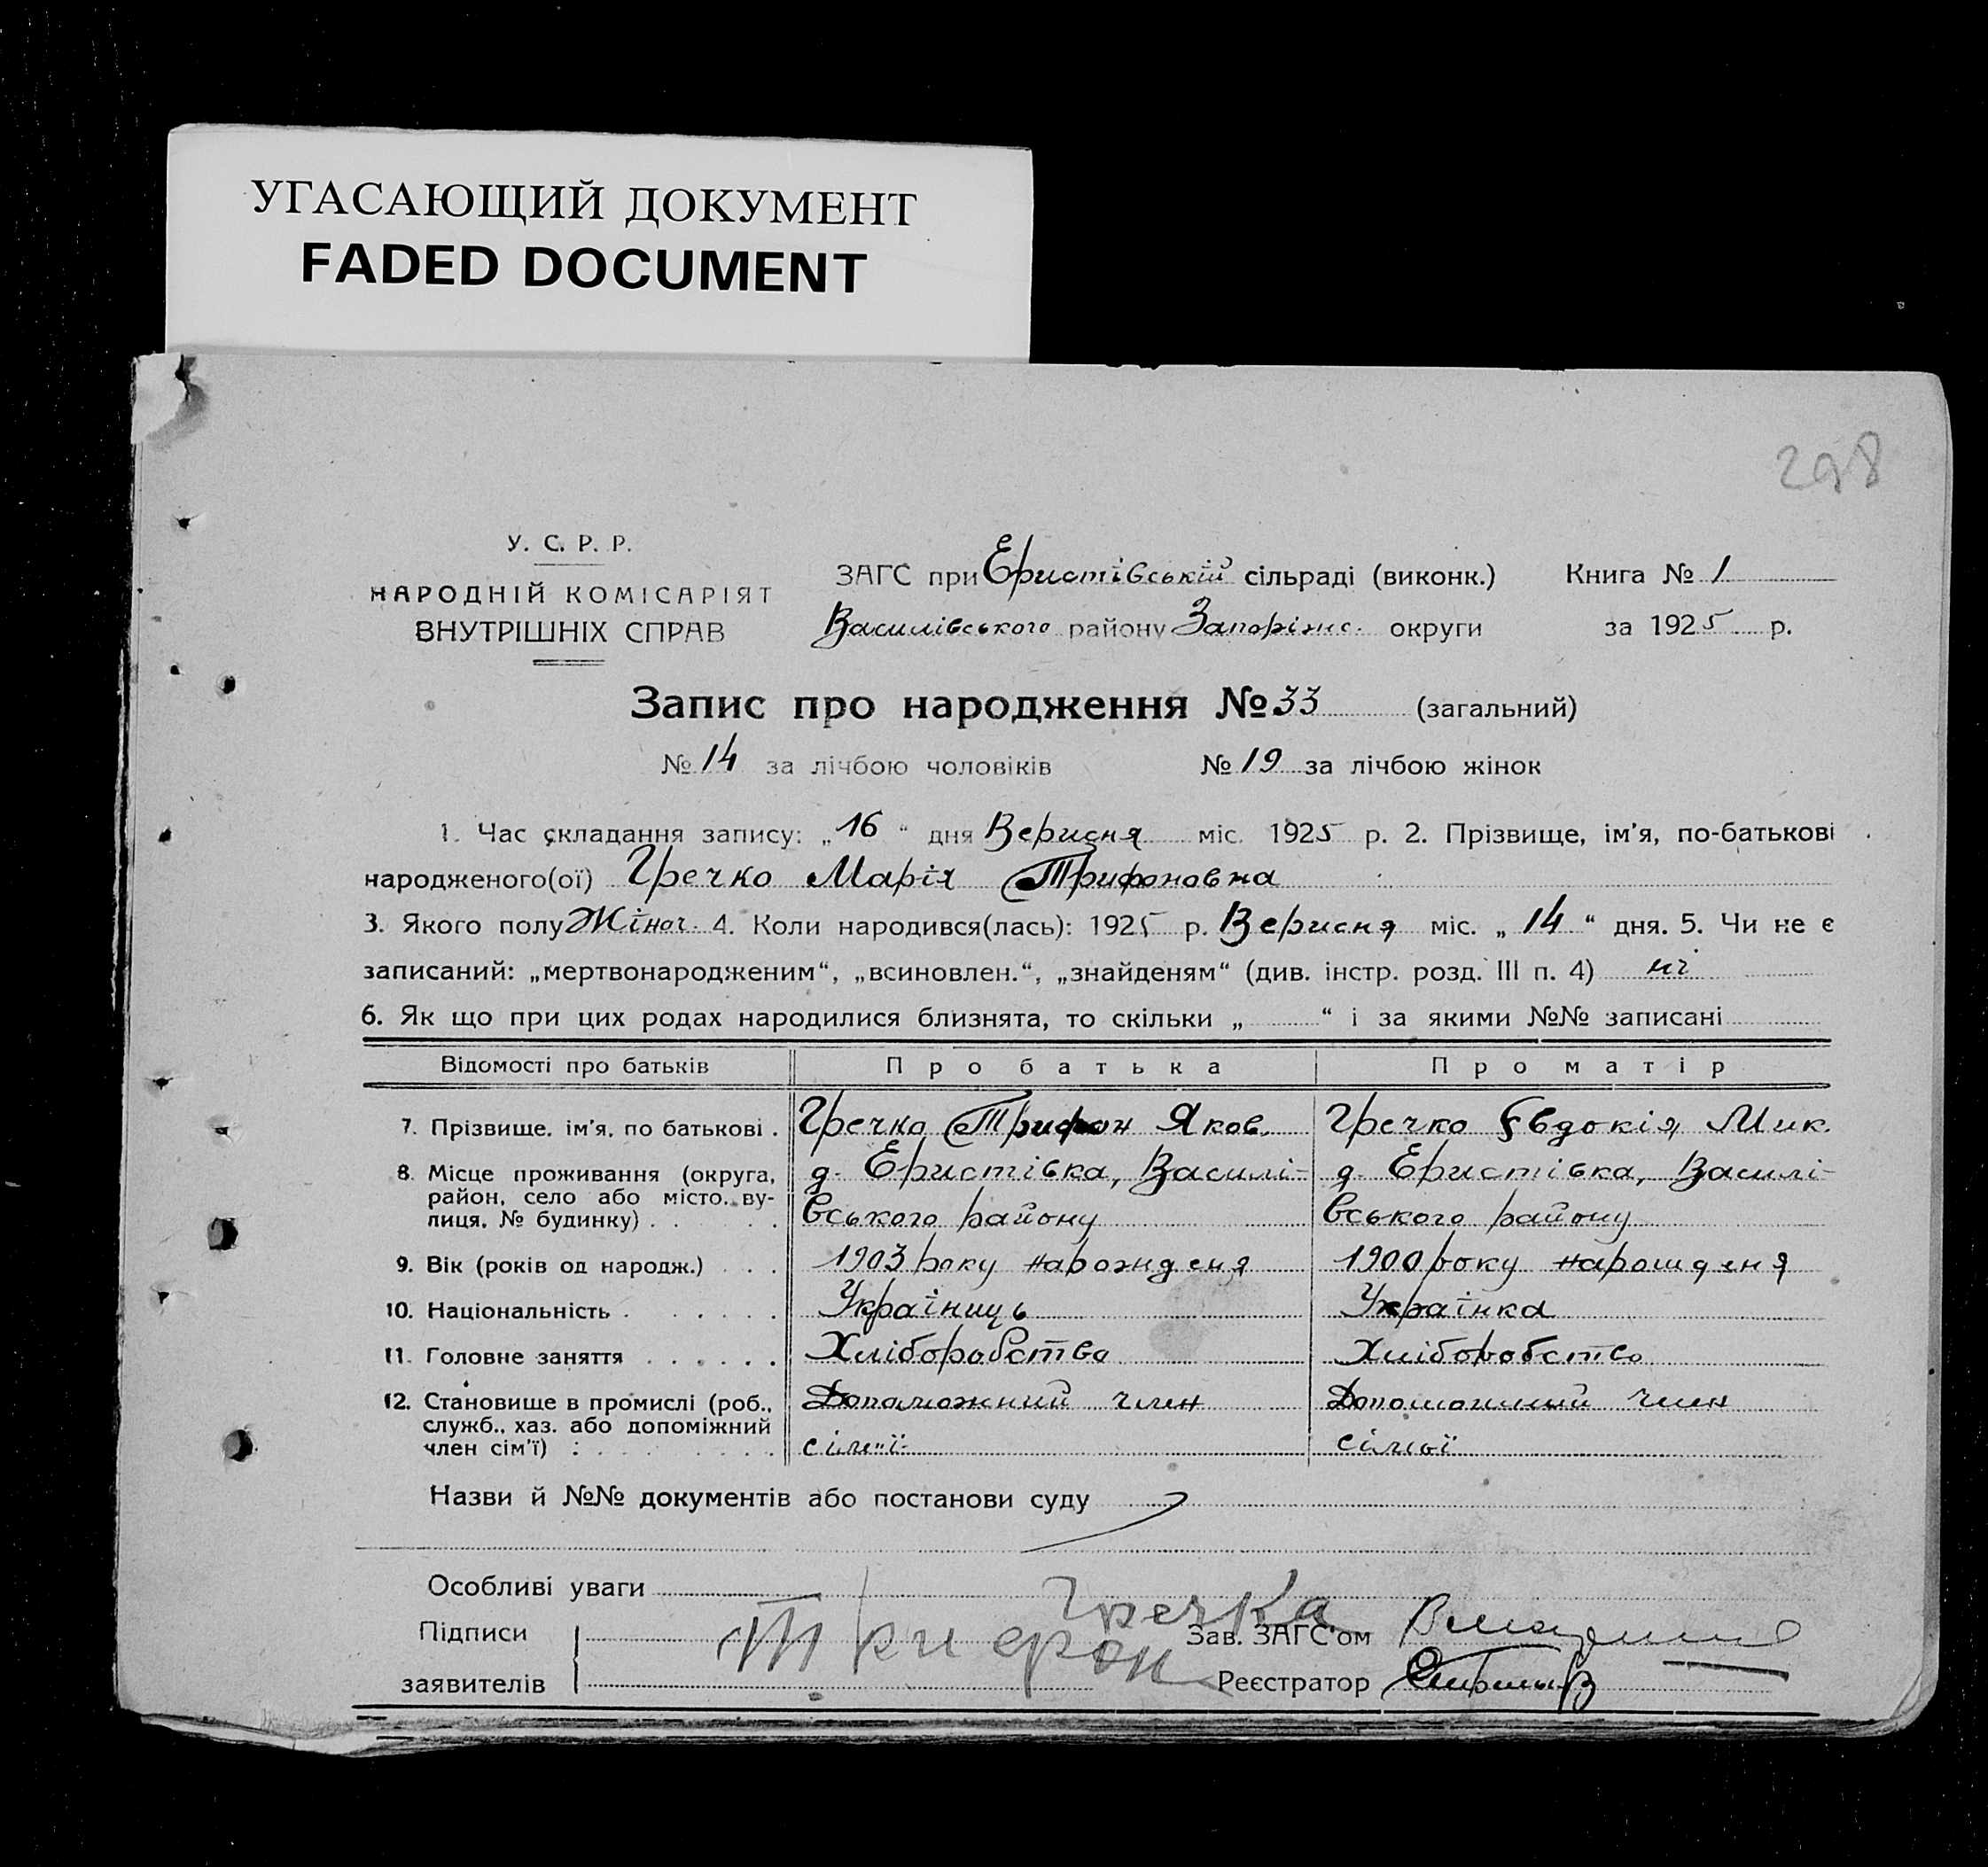 УГАСАЮЩИЙ ДОКУМЕНТ
FADED DOCUMENT
298
У. С. Р. Р.
НАРОДНІЙ КОМІСАРІЯТ
ВНУТРІШНІХ СПРАВ
ЗАГС при Еристівській сільраді (виконк.) Книга № 1
Василівського району Запоріжс. округи за 1925 р.
Запис про народження № 33 (загальний)
№ 14 за лічбою чоловіків № 19 за лічбою жінок
1. Час складання запису: „16“ дня Верисня міс. 1925 р. 2. Прізвище, ім'я, по-батькові
народженого(ої) Гречко Марія Трифоновна
3. Якого полу Жіноч. 4. Коли народився(лась): 1925 р. Верисня міс. „14“ дня. 5. Чи не є
записаний: „мертвонародженим“, „всиновлен.“, „знайденям“ (див. інстр. розд. III п. 4) ні
6. Як що при цих родах народилися близнята, то скільки „ “ і за якими №№ записані
Відомості про батьків Про батька Про матір
7. Прізвище, ім'я, по батькові . Гречко Трифон Яков. Гречко Євдокія Мик.
8. Місце проживання (округа, район, село або місто, вулиця, № будинку) . . . д. Еристівка, Василі- д. Еристівка, Василі-
вського району вського району
9. Вік (років од народж.) . . . 1903 року нарождення 1900 року нарошденя
10. Національність . . . . . . Україниць Українка
11. Головне заняття . . . . . . Хліборобство Хліборобство
12. Становище в промислі (роб., Допаможний член Допоможний член
служб., хаз. або допоміжний
член сім'ї) : . . . . . сімї сімьї
Назви й №№ документів або постанови суду
Особливі уваги
Гречка
Підписи Трифон Зав. ЗАГС'ом
заявителів Реєстратор